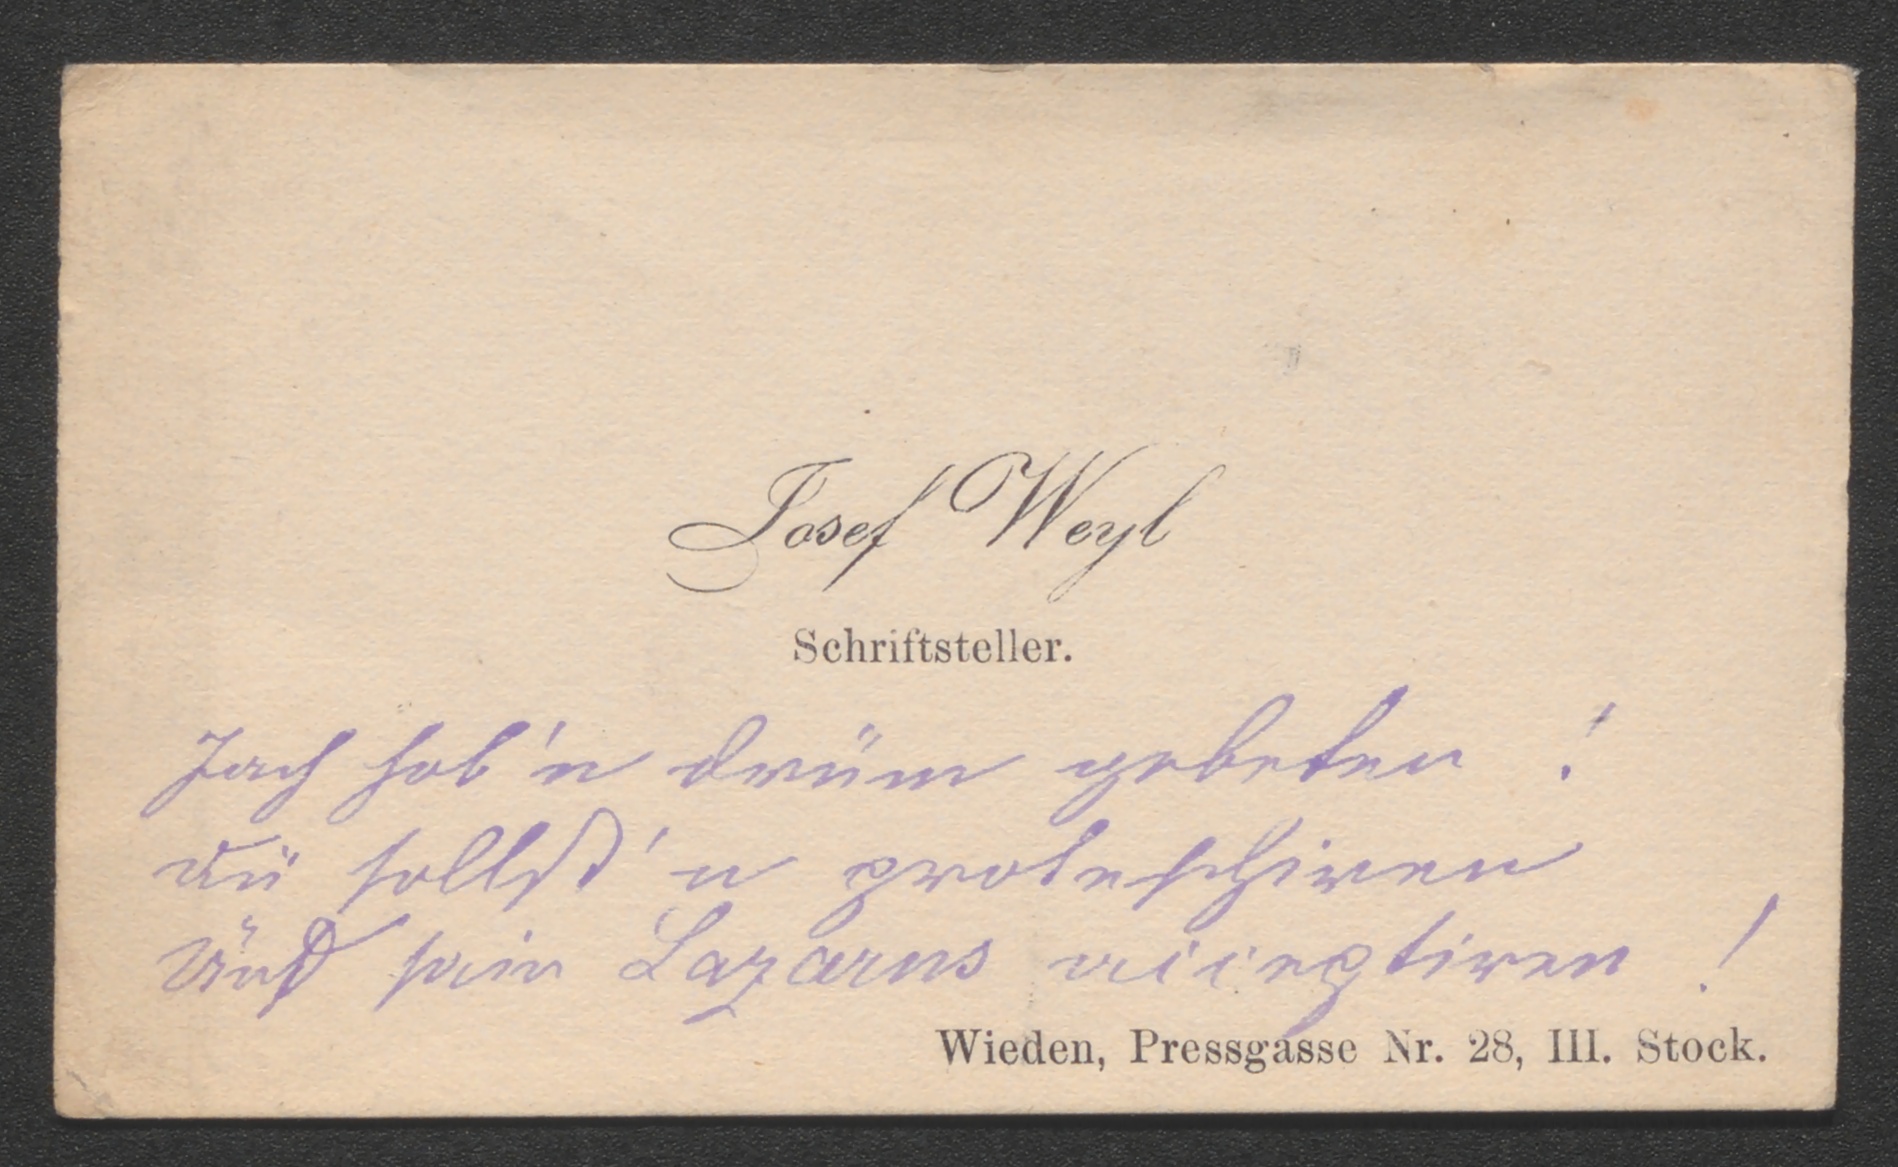 Josef Weyl
Schriftsteller.
Jach hob'n drum gebeten!
du sollst'n proteschiren
Und sein Lazarus acceptiren!
Wieden, Pressgasse Nr. 28, III. Stock.